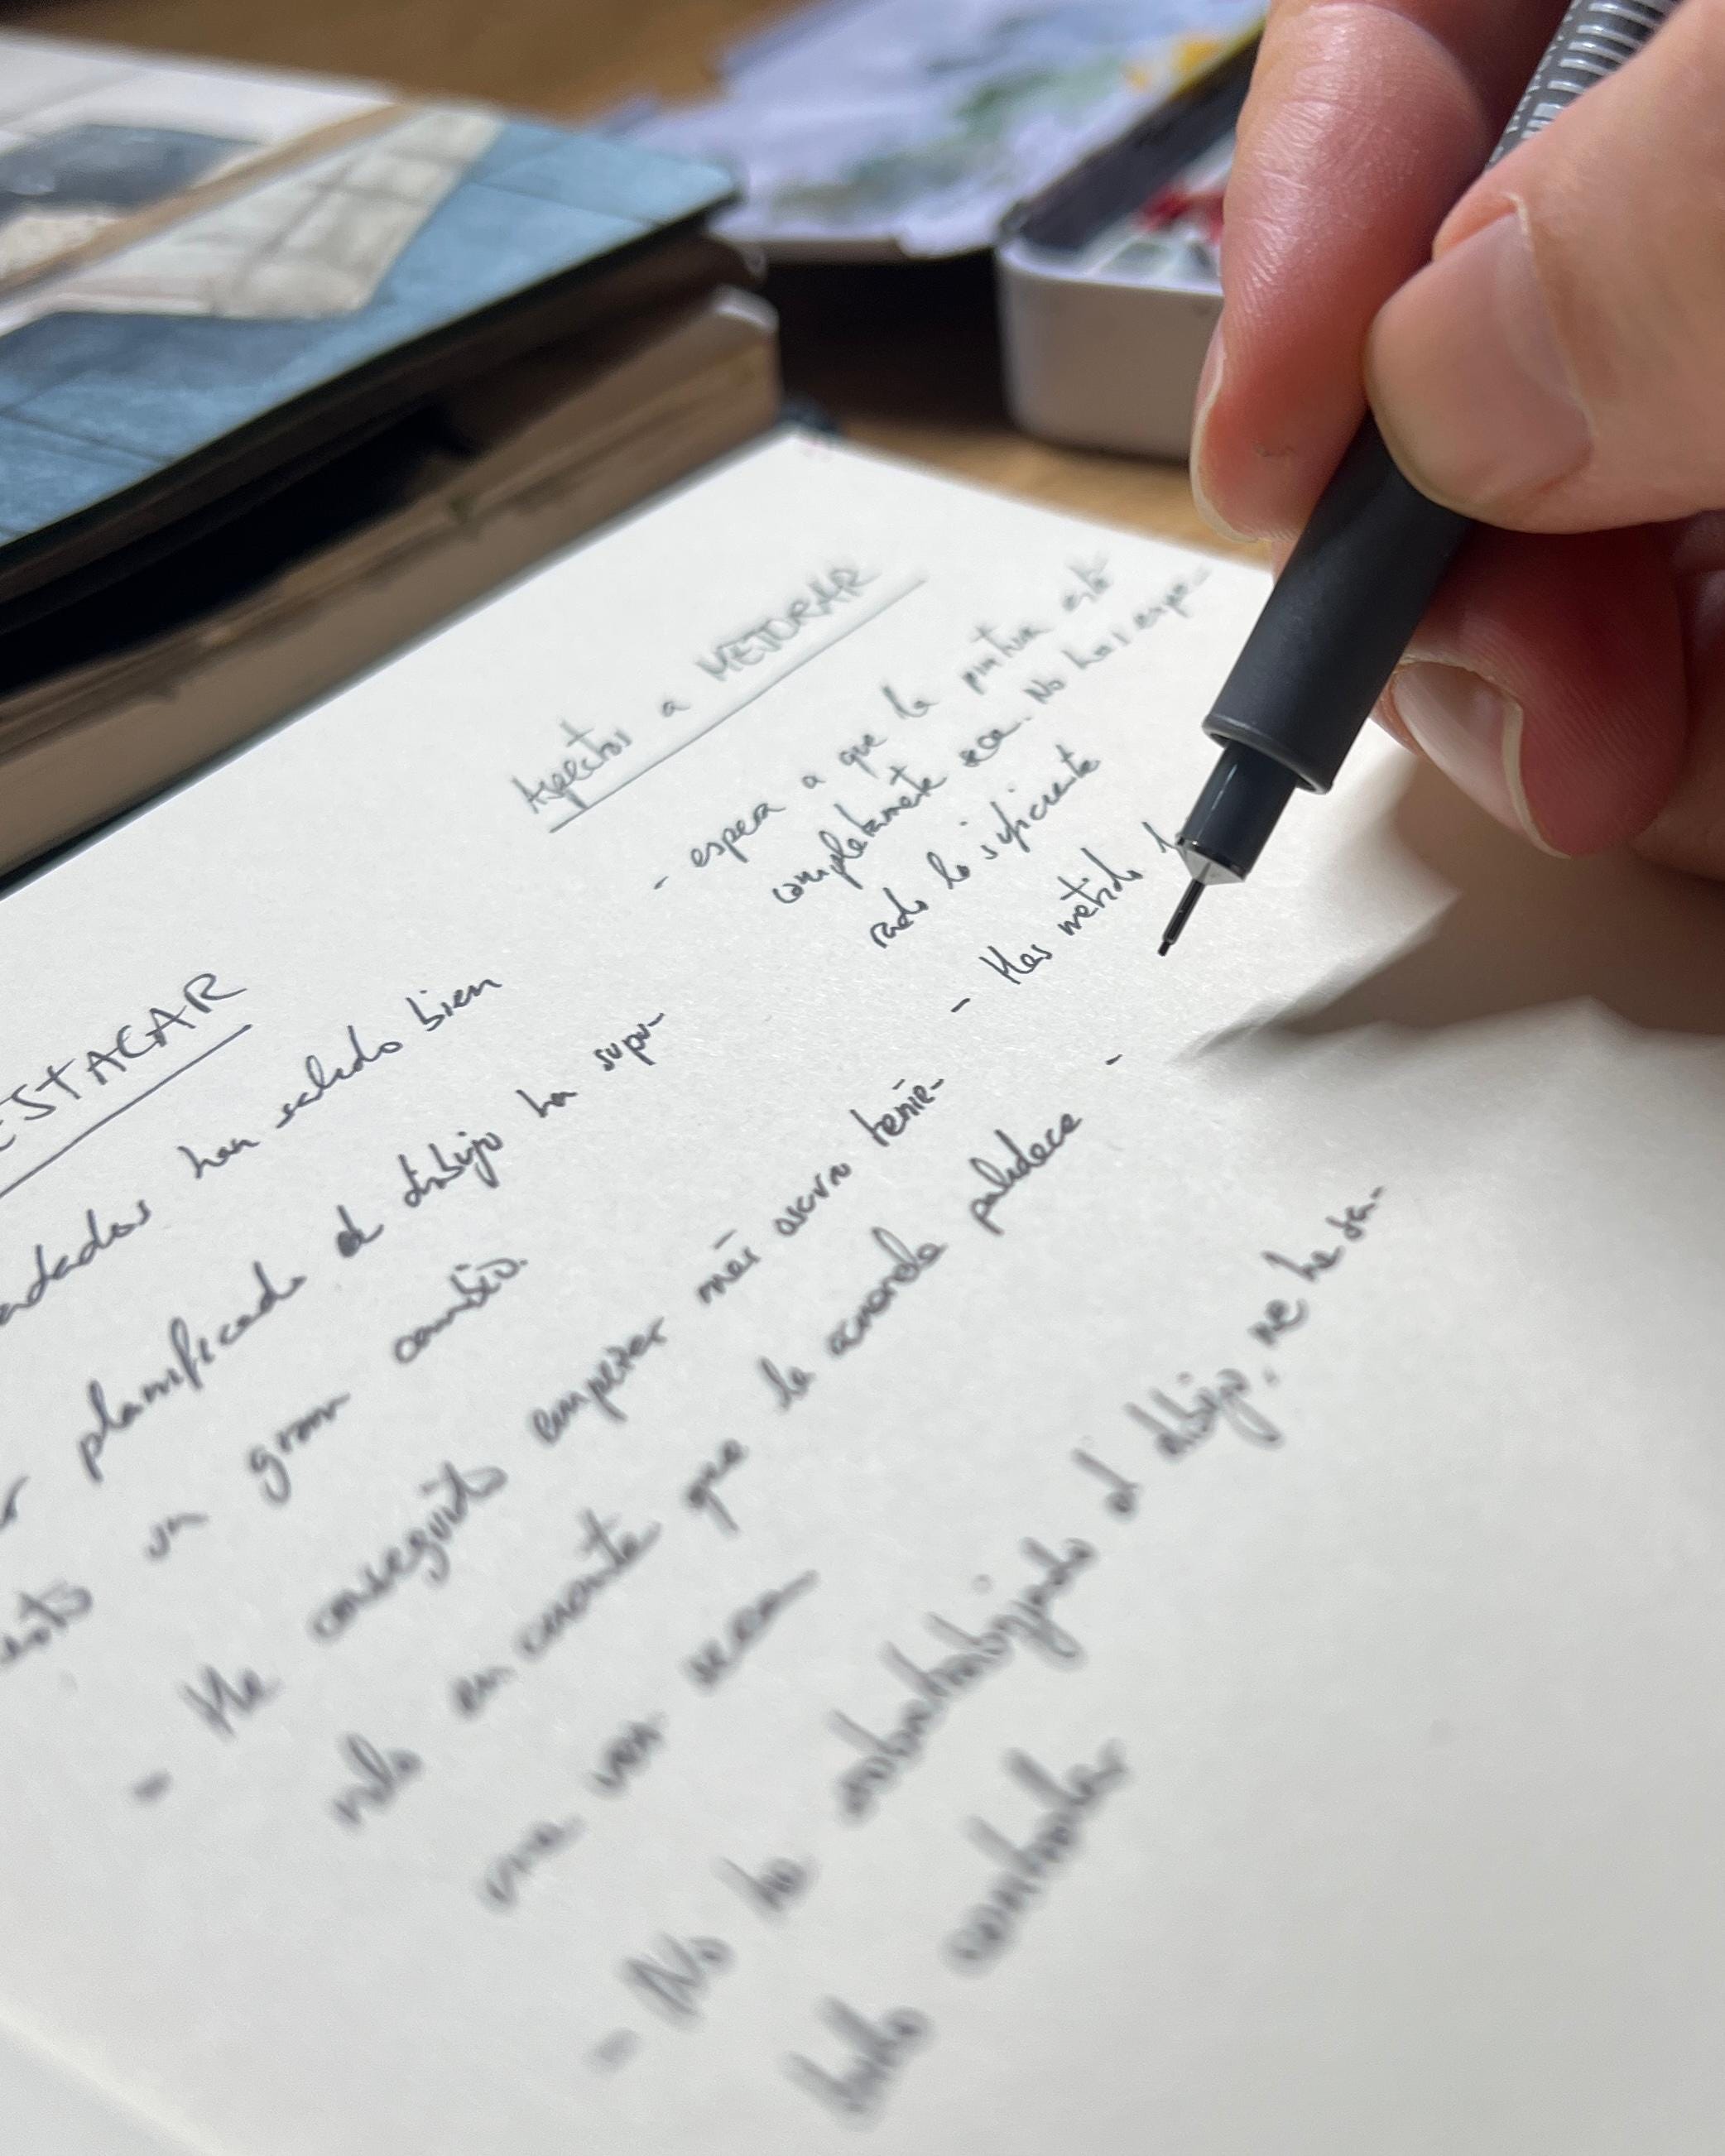 ESTACAR
han salido bien
planificado el dibujo ha supu-
un gran cambio.
- He conseguido empezar más oscuro tenié-
ndo en cuenta que la acuarela palidece
una vez seca
- No he sobretrabajado el dibujo, me he sa-
bido controlar
Aspectos a MEJORAR
- espera a que la pintura esté
completamente seca. No has espe-
rado lo suficiente
- Has metido
-